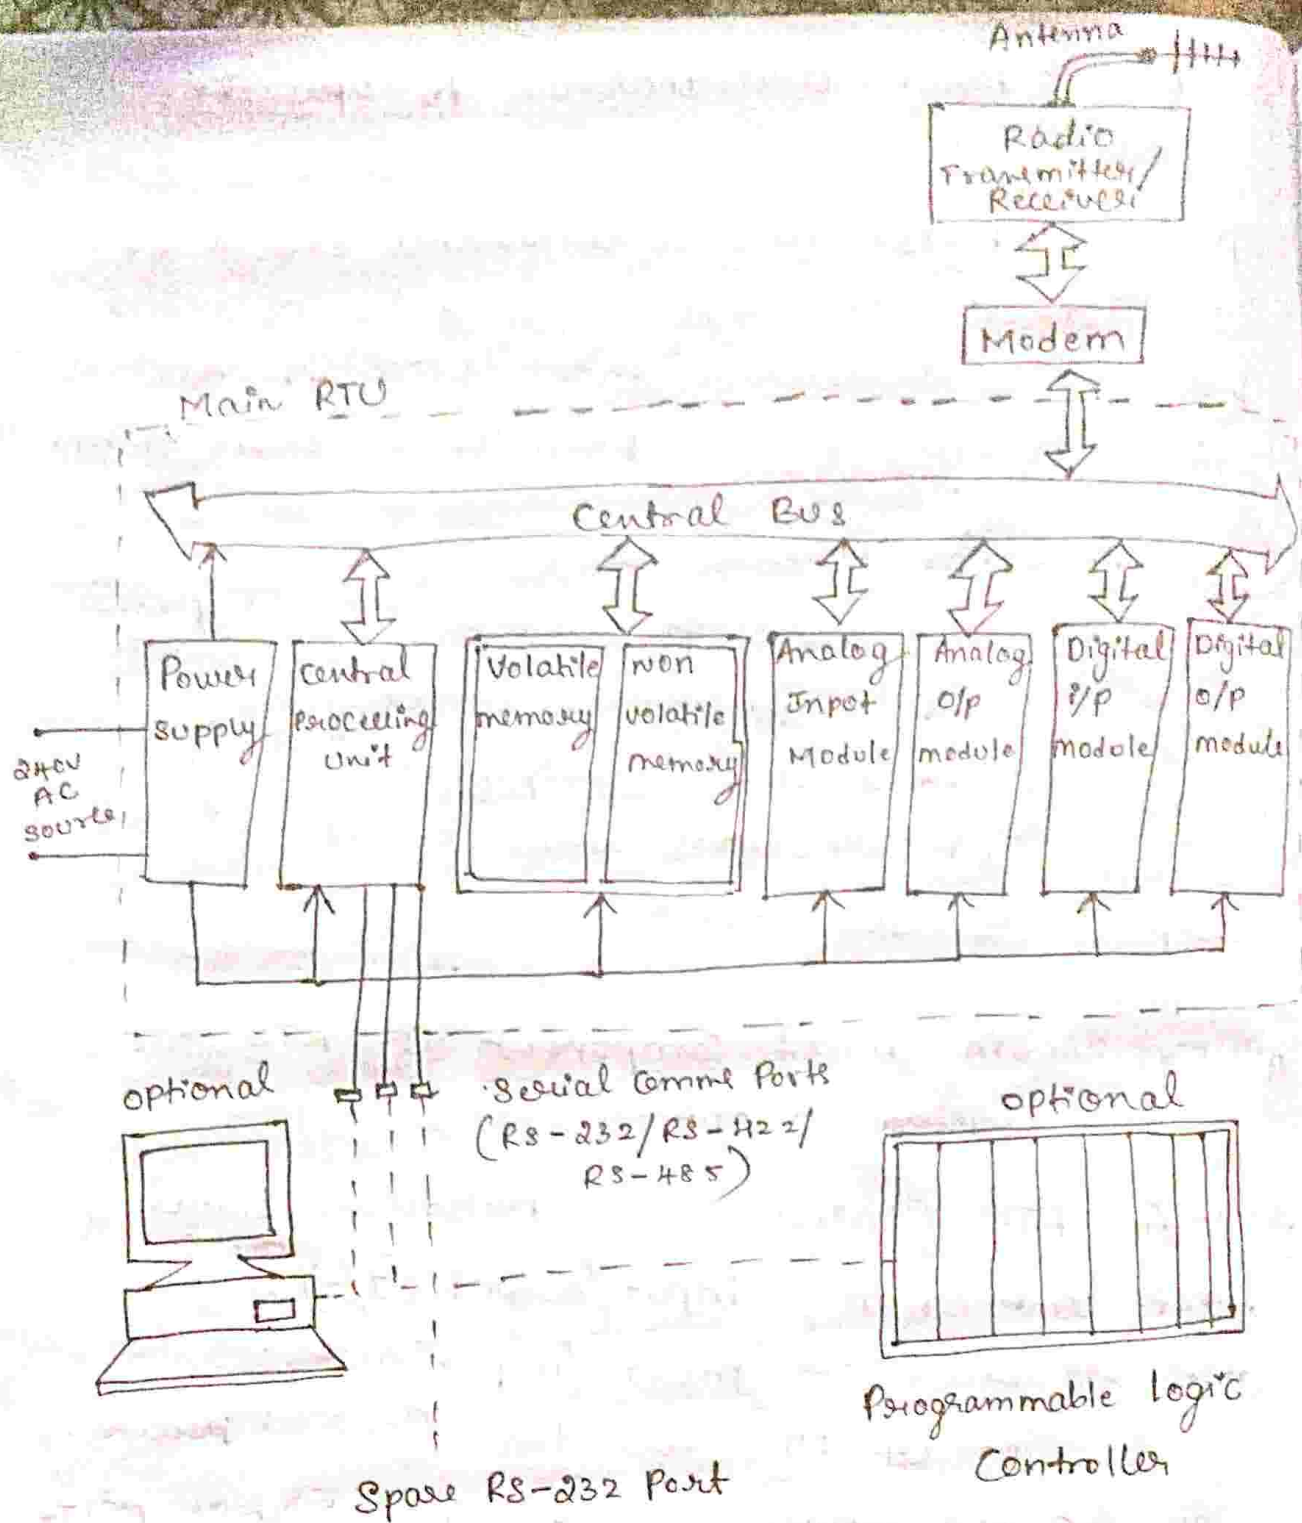 Antenna
Radio
Transmitter/
Receiver
Modem
Main RTU
Central Bus
Power
Supply
Central
Processing
Unit
Volatile
memory
Non
volatile
memory
Analog
Input
Module
Analog
O/p
module
Digital
i/p
module
Digital
o/p
module
240V
AC
source
optional
Serial Comms Ports
(RS-232/RS-422/
RS-485)
optional
Programmable Logic
Controller
Spare RS-232 Port